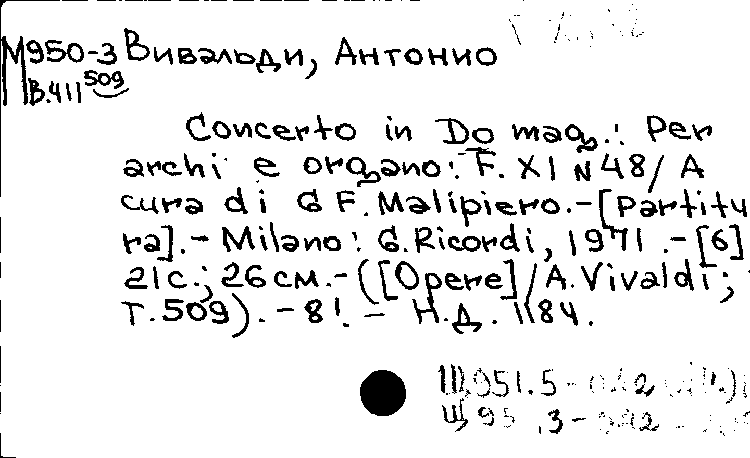 М950-3 Вивальди, Антонио
В.411 509
Concerto in Do mag.: Per
archi e organo: F. XI N 48/ A
cura di G F. Malipiero.-[Partitu
ra].- Milano: G. Ricordi, 1971.-[6]
21с.; 26 см.-([Opere]/A. Vivaldi;
Т.509).-8!.- Н.Д. 1184.
Щ951.5-
Щ95 .3-